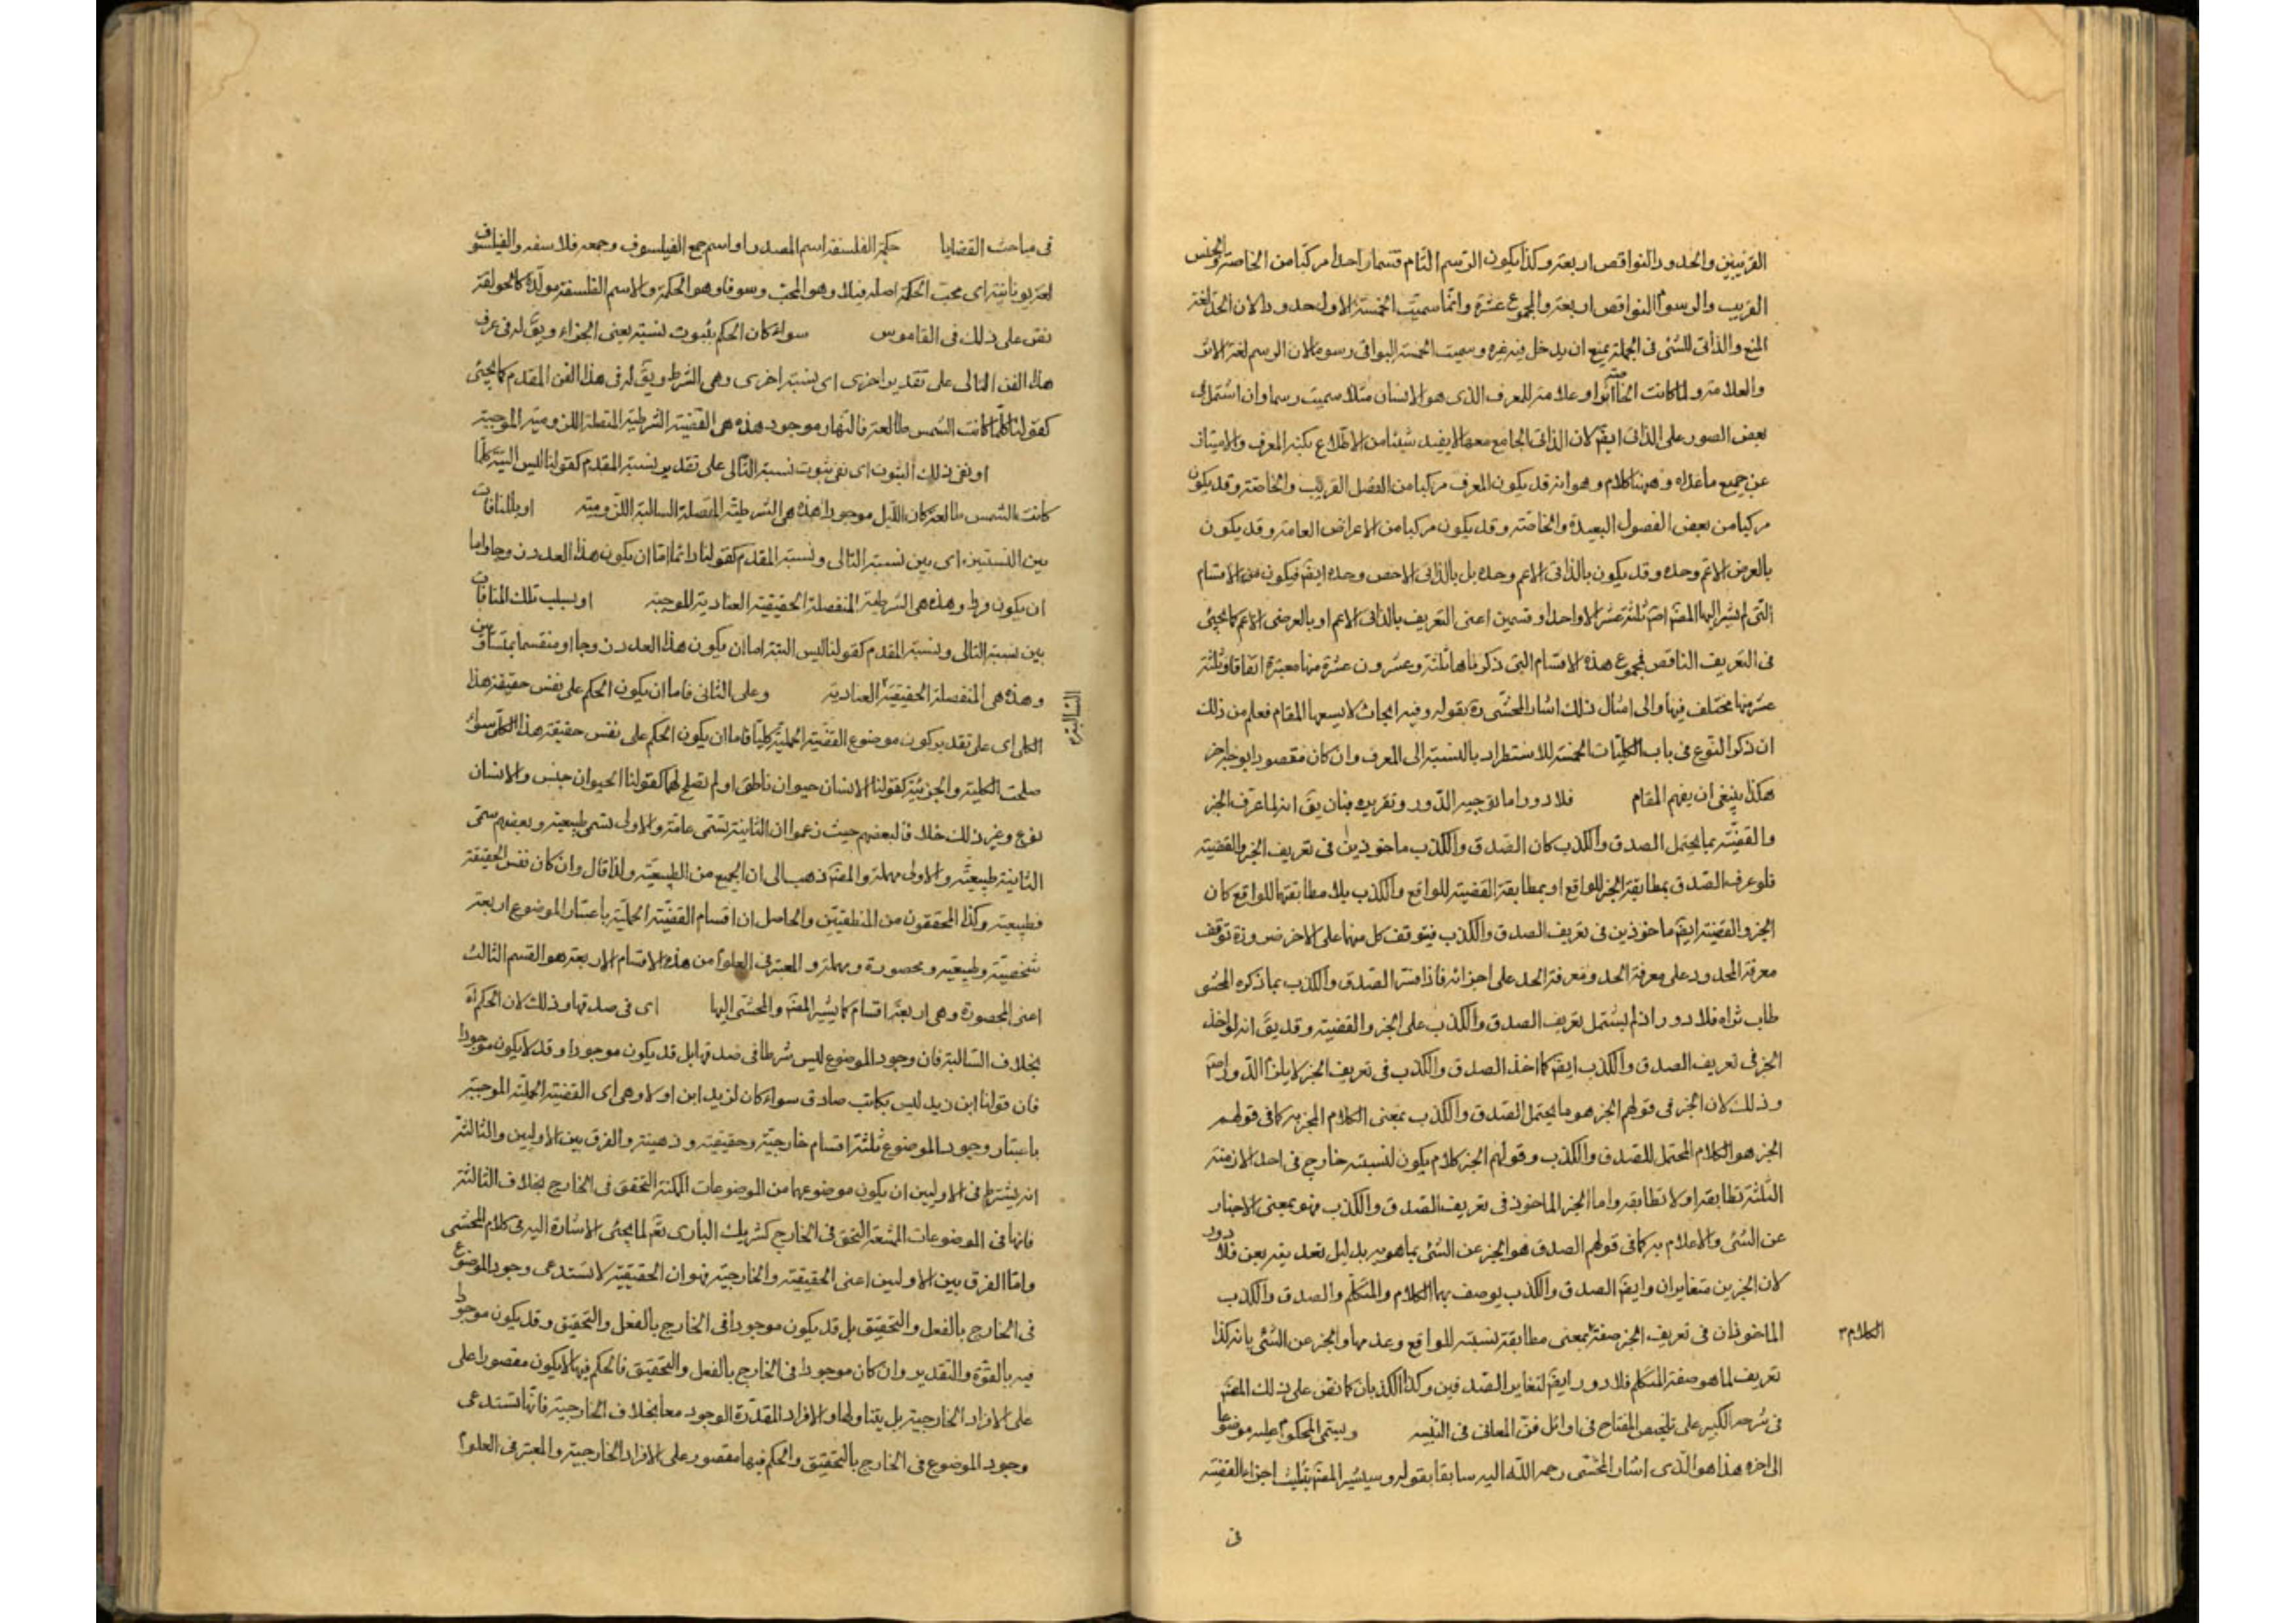 القريبين والحدود النواقص اربعة وكذا يكون الرسم التام قسما واحدا مركبا من الخاصة والجنس
القريب والرسوم النواقص اربعة والمجموع عشرة وانما سميت الخمسة الاول حدودا لان الحد لغة
المنع والذاتى للشئ فى الجملة يمنع ان يدخل فيه غيره وسميت الخمسة البواقى رسوما لان الرسم لغة الاثر
والعلامة ولما كانت الخاصة اثرا وعلامة للمعرف الذى هو الانسان مثلا سميت رسما وان اشتمل فى
بعض الصور على الذاتى ايضا لان الذاتى الجامع معها لا يفيد شيئا من الاطلاع بكنه المعرف والامتياز
عن جميع ما عداه وههنا كلام وهو انه قد يكون المعرف مركبا من الفصل القريب والخاصة وقد يكون
مركبا من بعض الفصول البعيدة والخاصة وقد يكون مركبا من الاعراض العامة وقد يكون
بالعرض الاعم وحده وقد يكون بالذاتى الاعم وحده بل بالذاتى الاخص وحده ايضا فيكون من الاقسام
التى لم يشر اليها المصّ ثلثة عشر الا واحدا وقسمين اعنى التعريف بالذاتى الاعم او بالعرضى الاعم كما يجئ
فى التعريف الناقص فمجموع هذه الاقسام التى ذكرناها ثلثة وعشرون عشرة منها معتبرة اتفاقا وثلثة
عشر منها مختلف فيها والى امثال ذلك اشار المحشى ره بقوله وفيه ابحاث لا يسعها المقام فعلم من ذلك
ان ذكر النوع فى باب الكليات الخمسة للاستطراد بالنسبة الى المعرف وان كان مقصودا بوجه اخر
هكذا ينبغى ان يفهم المقام فلا دور اما توجيه الدور وتقريره فبان يقّ انه لما عرف الخبر
والقضية بما يحتمل الصدق والكذب كان الصدق والكذب ماخوذين فى تعريف الخبر والقضية
فلو عرف الصدق بمطابقة الخبر للواقع او بمطابقة القضية للواقع والكذب بلا مطابقتهما للواقع كان
الخبر والقضية ايضا ماخوذين فى تعريف الصدق والكذب فيتوقف كل منهما على الاخر ضرورة توقف
معرفة المحدود على معرفة الحد ومعرفة الحد على اجزائه فاذا فسّر الصدق والكذب بما ذكره المحشى
طاب ثراه فلا دور اذ لم يشتمل تعريف الصدق والكذب على الخبر والقضية وقد يقّ انه لو اخذ
الخبر فى تعريف الصدق والكذب ايضا كما اخذ الصدق والكذب فى تعريف الخبر لا يلزم الدور ايضا
وذلك لان الخبر فى قولهم الخبر هو ما يحتمل الصدق والكذب بمعنى الكلام المخبر به كما فى قولهم
الخبر هو الكلام المحتمل للصدق والكذب وقولهم الخبر كلام يكون لنسبته خارج فى احد الازمنة
الثلثة تطابقه او لا تطابقه واما الخبر الماخوذ فى تعريف الصدق والكذب فهو بمعنى الاخبار
عن الشئ والاعلام به كما فى قولهم الصدق هو الخبر عن الشئ بما هو به بدليل تعديته بعن فلا دور
لان الخبرين متغايران وايضا الصدق والكذب يوصف بهما الكلام والمتكلم والصدق والكذب
الماخوذان فى تعريف الخبر صفة بمعنى مطابقة نسبته للواقع وعدمها والخبر عن الشئ بانه كذا
الكلام
تعريف لما هو صفة المتكلم فلا دور ايضا لتغاير الصدقين وكذا الكذبان كما نص على ذلك المصّ
فى شرحه الكبير على تلخيص المفتاح فى اوائل فن المعانى فى التنبيه ويسمى المحكوم عليه موضوعا
الى اخره هذا هو الذى اشار المحشى رحمه الله اليه سابقا بقوله وسيشير المصّ بتثليث اجزاء القضية
فى
فى مباحث القضايا حكمة الفلسفة اسم المصدر او اسم جمع الفيلسوف وجمعه فلاسفه والفيلسوف
لغة يونانية اى محب الحكمة اصله فيلا وهو المحب وسوفا وهو الحكمة والاسم الفلسفة مولدة كالحوقلة
نص على ذلك فى القاموس سواء كان الحكم بثبوت نسبة يعنى الجزاء ويقّ له فى عرف
هذا الفن التالى على تقدير اخرى اى نسبة اخرى وهى الشرط ويقّ له فى هذا الفن المقدم كما يجئ
كقولنا كلما كانت الشمس طالعة فالنهار موجود هذه هى القضية الشرطية المتصلة اللزومية الموجبة
او بنفى ذلك الثبوت اى نفى ثبوت نسبة التالى على تقدير نسبة المقدم كقولنا ليس البتة كلما
كانت الشمس طالعة كان الليل موجودا هذه هى الشرطية المتصلة السالبة اللزومية او بالمنافات
بين النسبتين اى بين نسبة التالى ونسبة المقدم كقولنا دائما اما ان يكون هذا العدد زوجا واما
ان يكون فردا وهذه هى الشرطية المنفصلة الحقيقية العنادية الموجبة او بسلب تلك المنافات
بين نسبة التالى ونسبة المقدم كقولنا ليس البتة اما ان يكون هذا العدد زوجا او منقسما بمتساويين
وهذه هى المنفصلة الحقيقية العنادية وعلى الثانى فاما ان يكون الحكم على نفس حقيقة هذا
السالبة
الكلى اى على تقدير كون موضوع القضية الحملية كليا فاما ان يكون الحكم على نفس حقيقة هذا الكلى سواء
صلحت الكلية والجزئية كقولنا الانسان حيوان ناطق او لم تصلح لهما كقولنا الحيوان جنس والانسان
نوع وغير ذلك خلافا لبعضهم حيث زعموا ان الثانية تسمى عامة والاولى تسمى طبيعية وبعضهم سمى
الثانية طبيعية والاولى مهملة والمصّ ذهب الى ان الجميع من الطبيعية ولذا قال وان كان نفس الحقيقة
فطبيعية وكذا المحققون من المنطقيين والحاصل ان اقسام القضية الحملية باعتبار الموضوع اربعة
شخصية وطبيعية ومحصورة ومهملة والمعتبر فى العلوم من هذه الاقسام الاربعة هو القسم الثالث
اعنى المحصورة وهى اربعة اقسام كما يشير المصّ والمحشى اليها اى فى صدقها وذلك لان الحكم
بخلاف السالبة فان وجود الموضوع ليس شرطا فى صدقها بل قد يكون موجودا وقد لا يكون موجودا
فان قولنا ابن زيد ليس بكاتب صادق سواء كان لزيد ابن او لا وهى اى القضية الحملية الموجبة
باعتبار وجود الموضوع ثلثة اقسام خارجية وحقيقية وذهنية والفرق بين الاوليين والثالثة
انه يشترط فى الاوليين ان يكون موضوعهما من الموضوعات الممكنة التحقق فى الخارج بخلاف الثالثة
فانها فى الموضوعات الممتنعة التحقق فى الخارج كشريك البارى تعّ لما يجئ الاشارة اليه فى كلام المحشى
واما الفرق بين الاوليين اعنى الحقيقية والخارجية فهو ان الحقيقية لا تستدعى وجود الموضوع
فى الخارج بالفعل والتحقيق بل قد يكون موجودا فى الخارج بالفعل والتحقيق وقد يكون موجودا
فيه بالقوة والتقدير وان كان موجودا فى الخارج بالفعل والتحقيق فالحكم فيها لا يكون مقصورا على
على الافراد الخارجية بل يتناولها والافراد المقدرة الوجود معا بخلاف الخارجية فانها تستدعى
وجود الموضوع فى الخارج بالتحقيق والحكم فيها مقصور على الافراد الخارجية والمعتبر فى العلوم